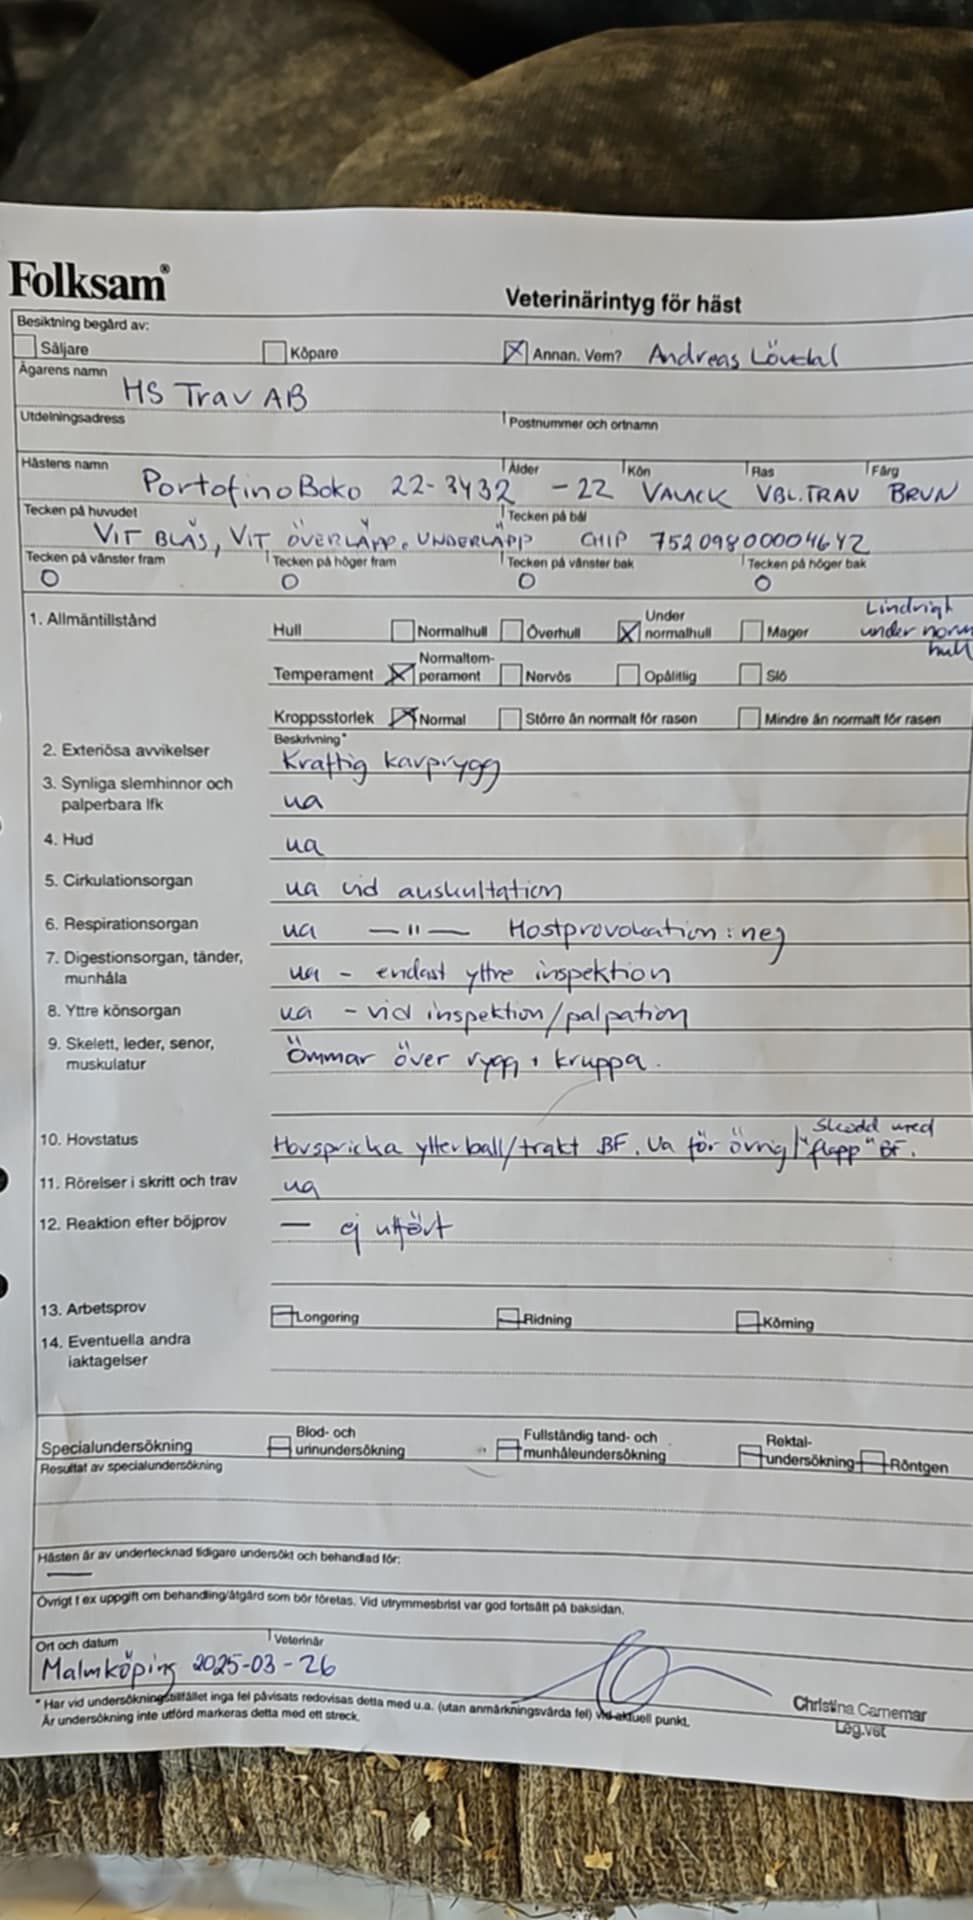 Folksam®
Veterinärintyg för häst
Besiktning begärd av:
Säljare Köpare Annan. Vem? Andreas Lövdal
Ägarens namn
HS Trav AB
Utdelningsadress Postnummer och ortnamn
Hästens namn Ålder Kön Ras Färg
Portofino Boko 22-3432 -22 VALACK VBL.TRAV BRUN
Tecken på huvudet Tecken på bål
VIT BLÄS, VIT ÖVERLÄPP, UNDERLÄPP CHIP
Tecken på vänster fram Tecken på höger fram Tecken på vänster bak Tecken på höger bak
O O O O
Lindrigt
under norm
hull
1. Allmäntillstånd Hull Normalhull Överhull Under normalhull Mager
Temperament Normaltemperament Nervös Opålitlig Slö
Kroppsstorlek Normal Större än normalt för rasen Mindre än normalt för rasen
Beskrivning*
2. Exteriösa avvikelser Kraftig karprygg
3. Synliga slemhinnor och
palperbara lfk ua
4. Hud ua
5. Cirkulationsorgan ua vid auskultation
6. Respirationsorgan ua —"— Hostprovokation: neg
7. Digestionsorgan, tänder,
munhåla ua - endast yttre inspektion
8. Yttre könsorgan ua - vid inspektion/palpation
9. Skelett, leder, senor,
muskulatur Ömmar över rygg + kruppa.
Skodd med
10. Hovstatus Hovspricka ytter ball/trakt BF. Ua för övrigt "flapp" BF.
11. Rörelser i skritt och trav ua
12. Reaktion efter böjprov — ej utfört
13. Arbetsprov Longering Ridning Körning
14. Eventuella andra
iakttagelser
Specialundersökning Blod- och urinundersökning Fullständig tand- och munhåleundersökning Rektalundersökning Röntgen
Resultat av specialundersökning
Hästen är av undertecknad tidigare undersökt och behandlad för:
—
Övrigt t ex uppgift om behandling/åtgärd som bör företas. Vid utrymmesbrist var god fortsätt på baksidan.
Ort och datum Veterinär
Malmköping 2025-03-26
Christina Carnemar
Leg.vet
* Har vid undersökningstillfället inga fel påvisats redovisas detta med u.a. (utan anmärkningsvärda fel) vid aktuell punkt.
Är undersökning inte utförd markeras detta med ett streck.